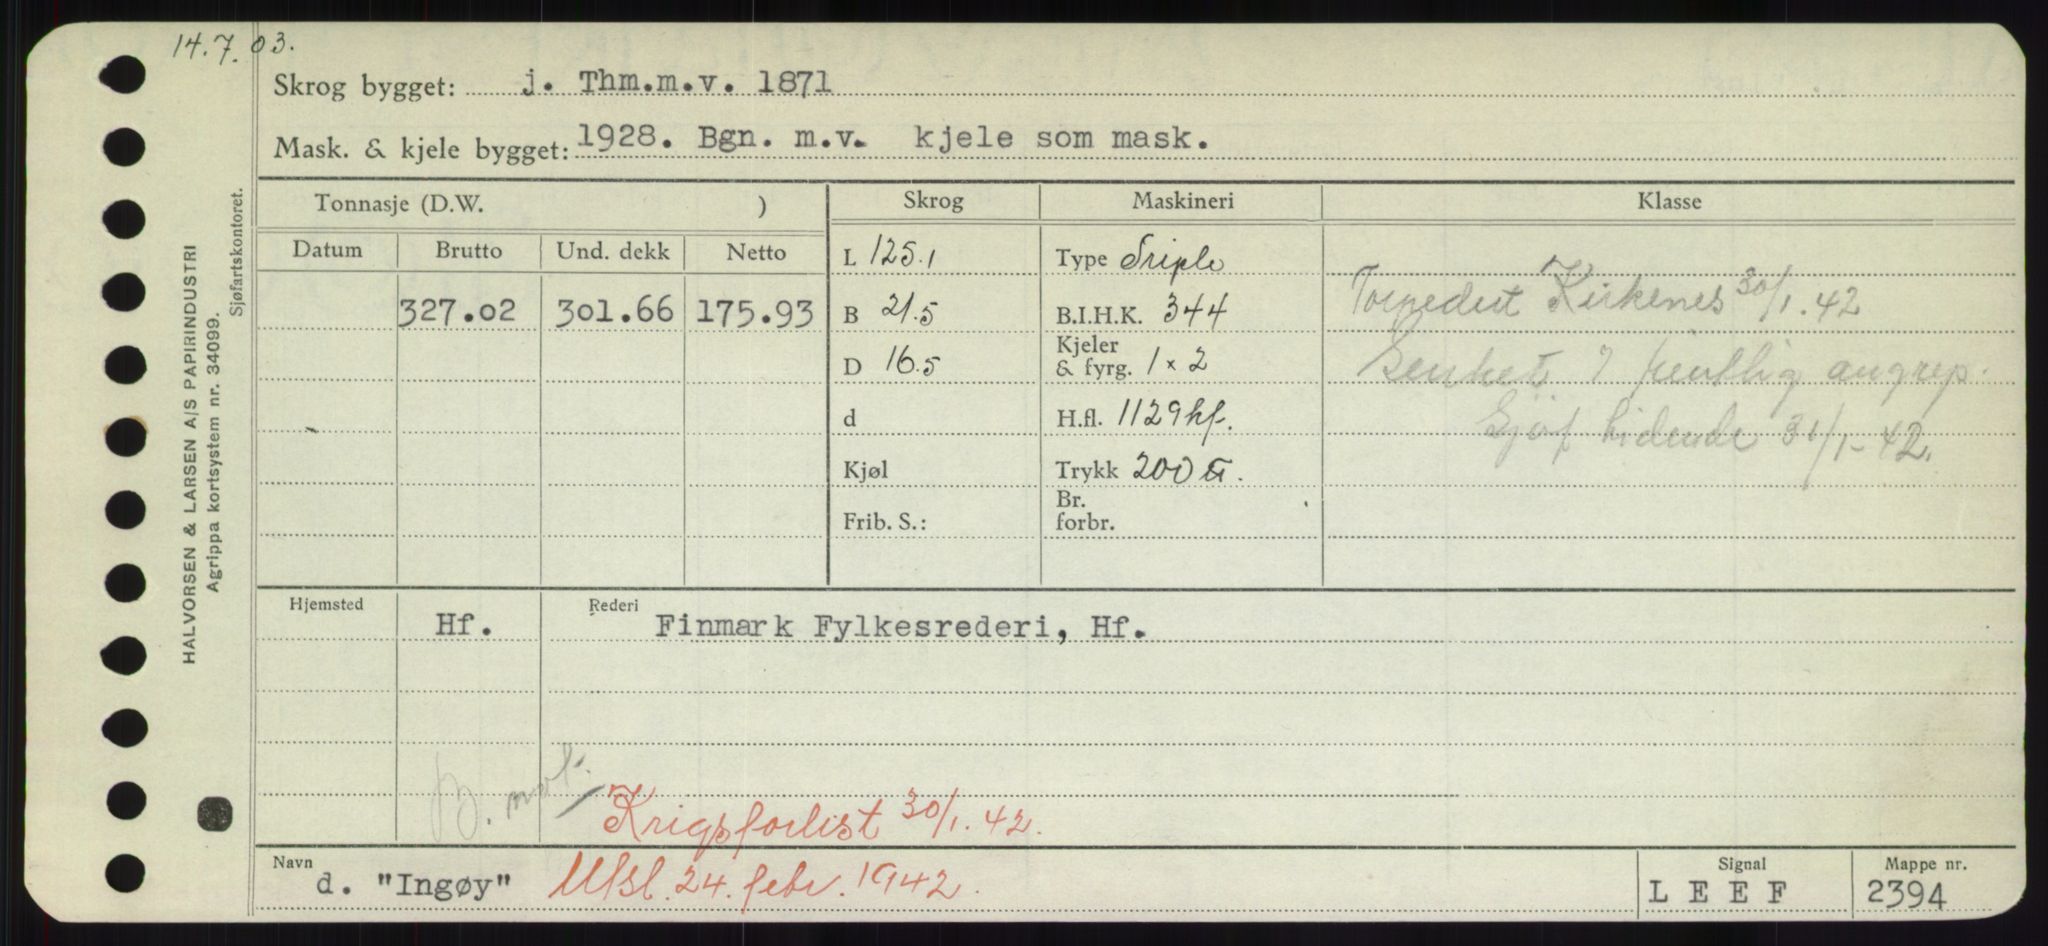 14.7.03.
Skrog bygget: j. Thm.m.v. 1871
Mask. & kjele bygget: 1928. Bgn. m.v. kjele som mask.
Tonnasje (D.W. )
Skrog
Maskineri
Klasse
Datum
Brutto
Und. dekk
Netto
327.02
301.66
175.93
L 125.1
B 21.5
D 16.5
d
Kjøl
Frib. S.:
Type Triple
B.I.H.K. 344
Kjeler
& fyrg. 1 x 2
H.fl. 1129 kf.
Trykk 200
Br.
forbr.
Torpedert Kirkenes 30/1.42
Senket v/ fientlig angrep.
Sjøf tidende 31/1-42.
Hjemsted
Rederi
Hf.
Finmark Fylkesrederi, Hf.
B. mot.
Krigsforlist 30/1.42.
Navn
d. "Ingøy"
Utsl. 24. febr. 1942.
Signal
L E E F
Mappe nr.
2394
HALVORSEN & LARSEN A/S PAPIRINDUSTRI
Agrippa kortsystem nr. 34099.
Sjøfartskontoret.